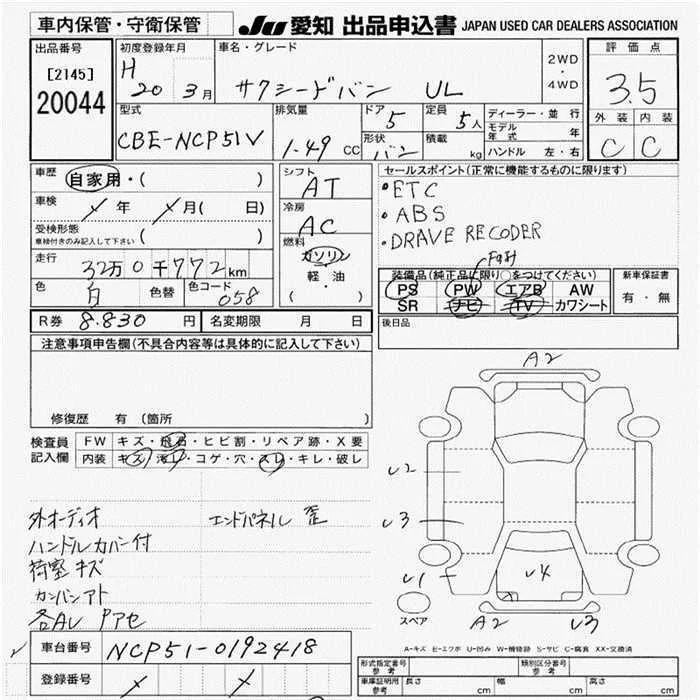 車内保管・守衛保管 JU 愛知 出品申込書 JAPAN USED CAR DEALERS ASSOCIATION
出品番号 初度登録年月 車名・グレード 2WD・4WD 評価点
[2145] H 20 3月 サクシードバン UL 3.5
20044
型式 排気量 ドア 5 定員 5人 ディーラー・並行 外装 内装
CBE-NCP51V 1.49 CC 形状 バン 積載 kg モデル年式 年 C C
ハンドル 左・右
車歴 自家用・( ) シフト AT セールスポイント(正常に機能するものに限ります)
車検 年 月( 日) 冷房 AC ・ETC
受検形態 ( ) ・ABS
車検付きのみ記入して下さい 燃料 ガソリン ・DRAVE RECODER
走行 32万0千772km 軽・油 装備品(純正品に限り○をつけてください) 新車保証書
色 白 色替 色コード 058 ( ・ ) PS PW エアB AW 有・無
SR ナビ TV カワシート
R券 8.830 円 名変期限 月 日 後日品
注意事項申告欄(不具合内容等は具体的に記入して下さい)
A2
修復歴 有 (箇所
検査員 FW キズ・飛石・ヒビ割・リペア跡・X要
記入欄 内装 キズ・汚レ・コゲ・穴・スレ・キレ・破レ
U2
外オーディオ エンドパネル 歪 U3
ハンドルカバー付
荷室キズ U1 U4
カンバンアト
各AL Pアセ スペア A2 U3
車台番号 NCP51-0192418 A-キズ E-エクボ U-凹み W-補修跡 S-サビ C-腐食 XX-交換済
登録番号 形式指定番号 参考 類別区分番号 参考
車庫証明用 参考 長さ cm 幅 cm 高さ cm